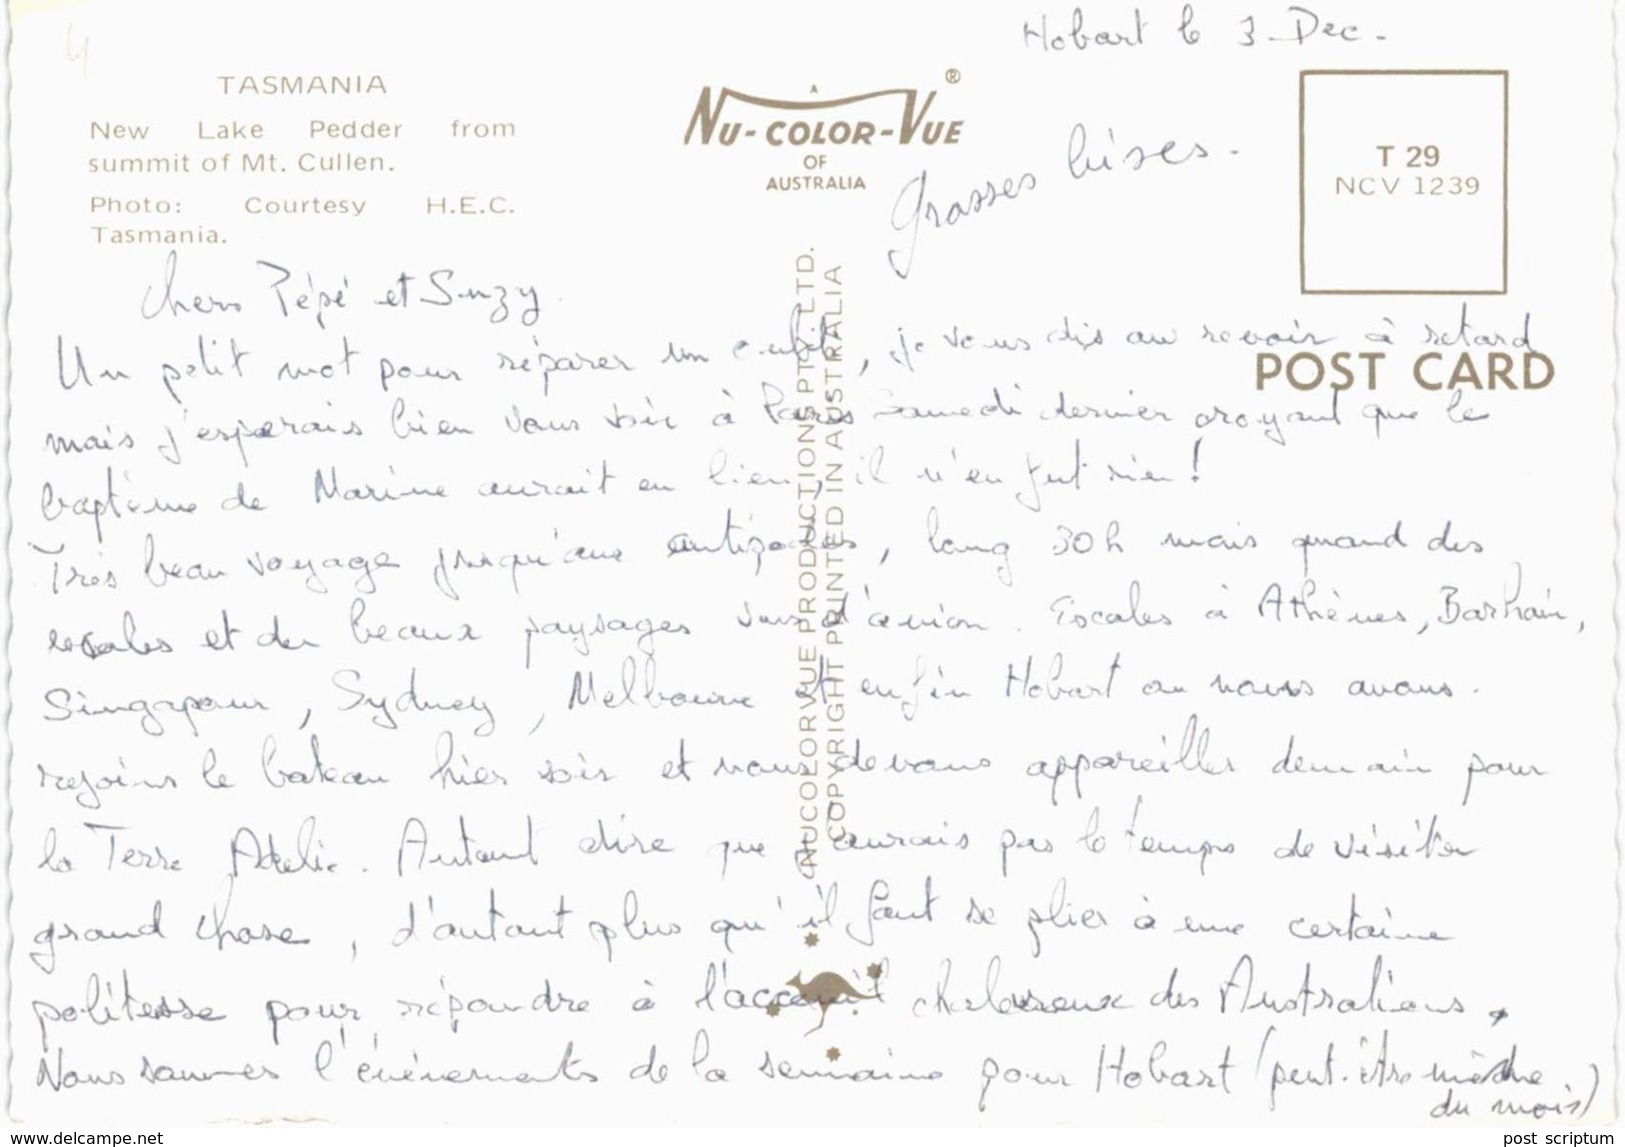 Hobart le 3 Dec.
TASMANIA
New Lake Pedder from
summit of Mt. Cullen.
Photo: Courtesy H.E.C.
Tasmania.
A
NU-COLOR-VUE ®
OF
AUSTRALIA
Grosses bises.
T 29
NCV 1239
POST CARD
NUCOLORVUE PRODUCTIONS PTY. LTD.
COPYRIGHT PRINTED IN AUSTRALIA
Chers Pépé et Suzy
Un petit mot pour réparer un oubli, je vous dis au revoir à retard
mais j'esperais bien vous voir à Paris Samedi dernier croyant que le
baptême de Marine aurait eu lieu, il n'en fut rien!
Très beau voyage jusqu'aux antipodes, long 30h mais quand des
escales et de beaux paysages vus d'avion. Escales à Athènes, Barhain,
Singapour, Sydney, Melbourne et enfin Hobart ou nous avons.
rejoins le bateau hier soir et nous devons appareiller demain pour
la Terre Adelie. Autant dire que j'aurais pas le temps de visiter
grand chose, d'autant plus qu'il faut se plier à une certaine
politesse pour répondre à l'acceuil chaleureux des Australiens.
Nous sommes l'évènements de la semaine pour Hobart (peut-être même
du mois)
www.delcampe.net
post scriptum